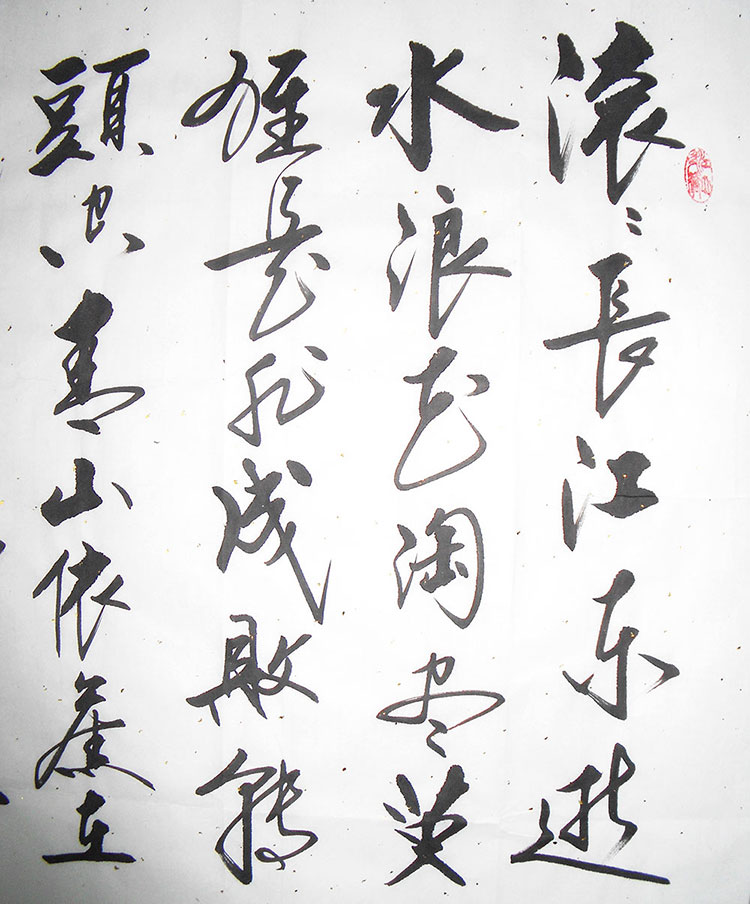 滚〻長江东逝
水浪花淘尽英
雄是非成敗转
頭空青山依舊在